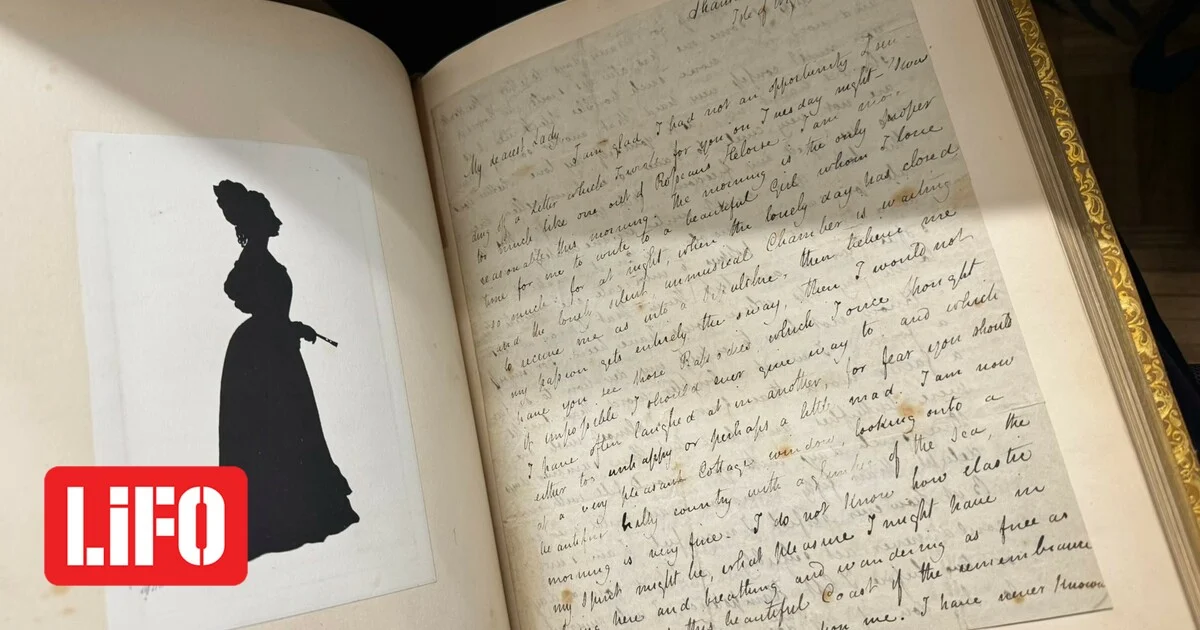 LiFO
Shan
Isle of W
My dearest Lady, I am glad I had not an opportunity I sen
ding of a Letter which I wrote for you on Tuesday night—'twas
too much like one out of Ropeaus Heloise. I am mo
reasonable this morning. The morning is the only proper
time for me to write to a beautiful Girl whom I love
so much: for at night, when the lonely day has closed
and the lonely, silent, unmusical Chamber is waiting
to receive me as into a Sepulchre, then believe me
my passion gets entirely the sway, then I would not
have you see those Rapsodies which I once thought
it impossible I should ever give way to, and which
I have often laughed at in another, for fear you should
either too unhappy or perhaps a little mad. I am now
at a very pleasant Cottage window, looking onto a
beautiful hilly country, with a glimpse of the Sea, the
morning is very fine. I do not know how elastic
my spirit might be, what pleasure I might have in
here and breathing and wandering as free as
this beautiful Coast if the remembrance
upon me. I have never known